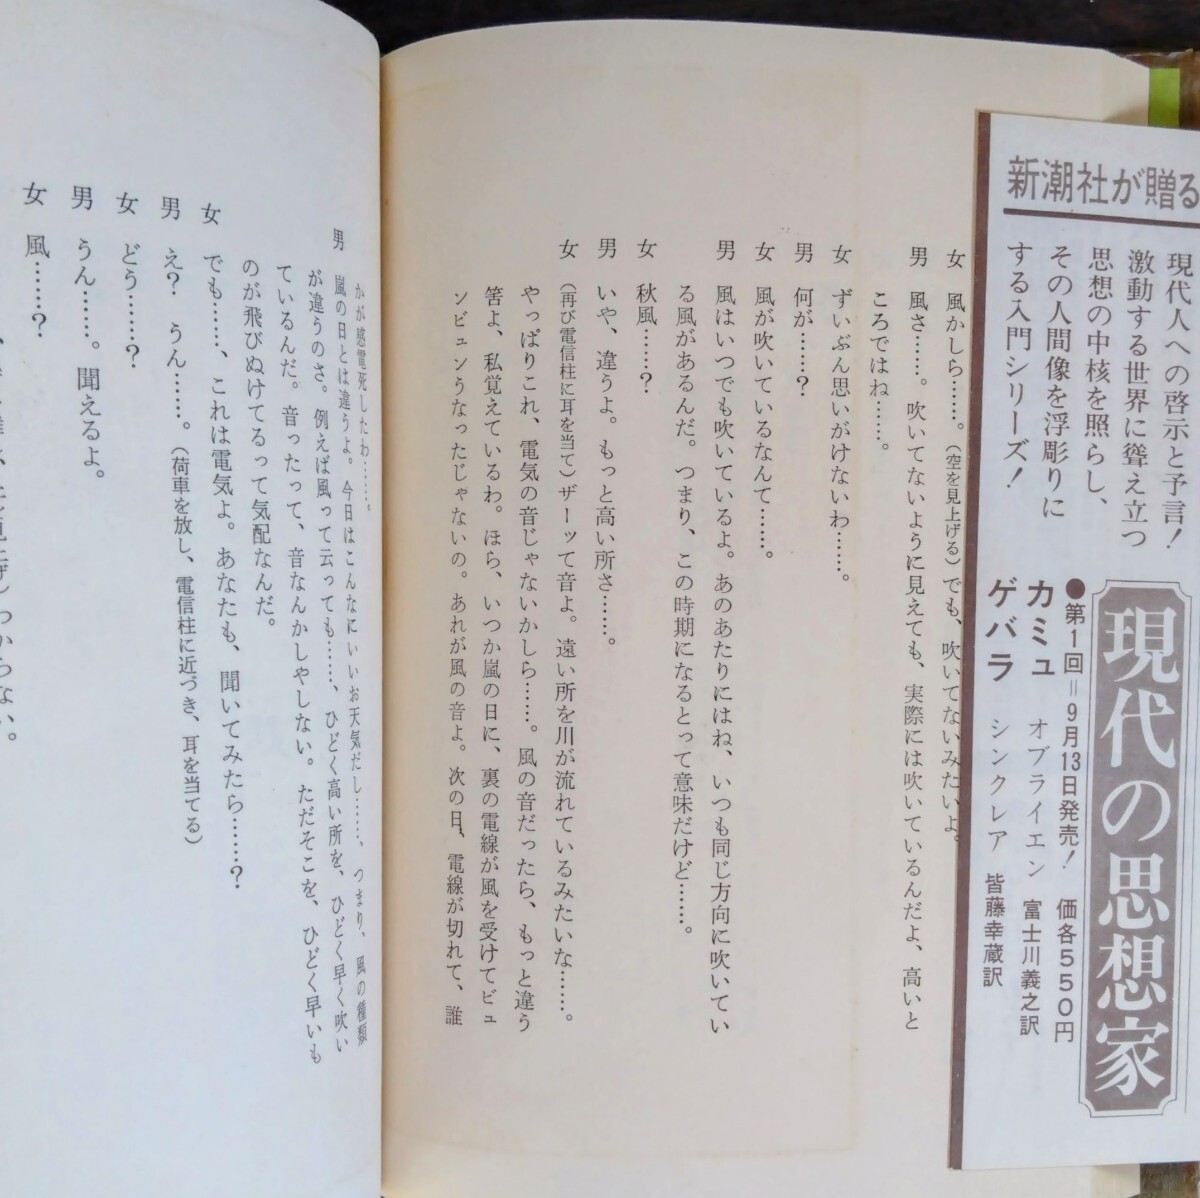 新潮社が贈る
現代人への啓示と予言!
激動する世界に聳え立つ
思想の中核を照らし、
その人間像を浮彫りに
する入門シリーズ!
現代の思想家
●第1回=9月13日発売! 価各550円
カミュ オブライエン 富士川義之訳
ゲバラ シンクレア 皆藤幸蔵訳
女 風かしら……。(空を見上げる)でも、吹いてないみたいよ。
男 風さ……。吹いてないように見えても、実際には吹いているんだよ、高いと
ころではね……。
女 ずいぶん思いがけないわ……。
男 何が……?
女 風が吹いているなんて……。
男 風はいつでも吹いているよ。あのあたりにはね、いつも同じ方向に吹いてい
る風があるんだ。つまり、この時期になるとって意味だけど……。
女 秋風……?
男 いや、違うよ。もっと高い所さ……。
女 (再び電信柱に耳を当て)ザーッて音よ。遠い所を川が流れているみたいな……。
やっぱりこれ、電気の音じゃないかしら……。風の音だったら、もっと違う
筈よ、私覚えているわ。ほら、いつか嵐の日に、裏の電線が風を受けてビュ
ンビュンうなったじゃないの。あれが風の音よ。次の日、電線が切れて、誰
かが感電死したわ……。
男 嵐の日とは違うよ。今日はこんなにいいお天気だし……、つまり、風の種類
が違うのさ。例えば風って云っても……、ひどく高い所を、ひどく早く吹い
ているんだ。音ったって、音なんかしやしない。ただそこを、ひどく早いも
のが飛びぬけてるって気配なんだ。
女 でも……、これは電気よ。あなたも、聞いてみたら……?
男 え? うん……。(荷車を放し、電信柱に近づき、耳を当てる)
女 どう……?
男 うん……。聞えるよ。
女 風……?